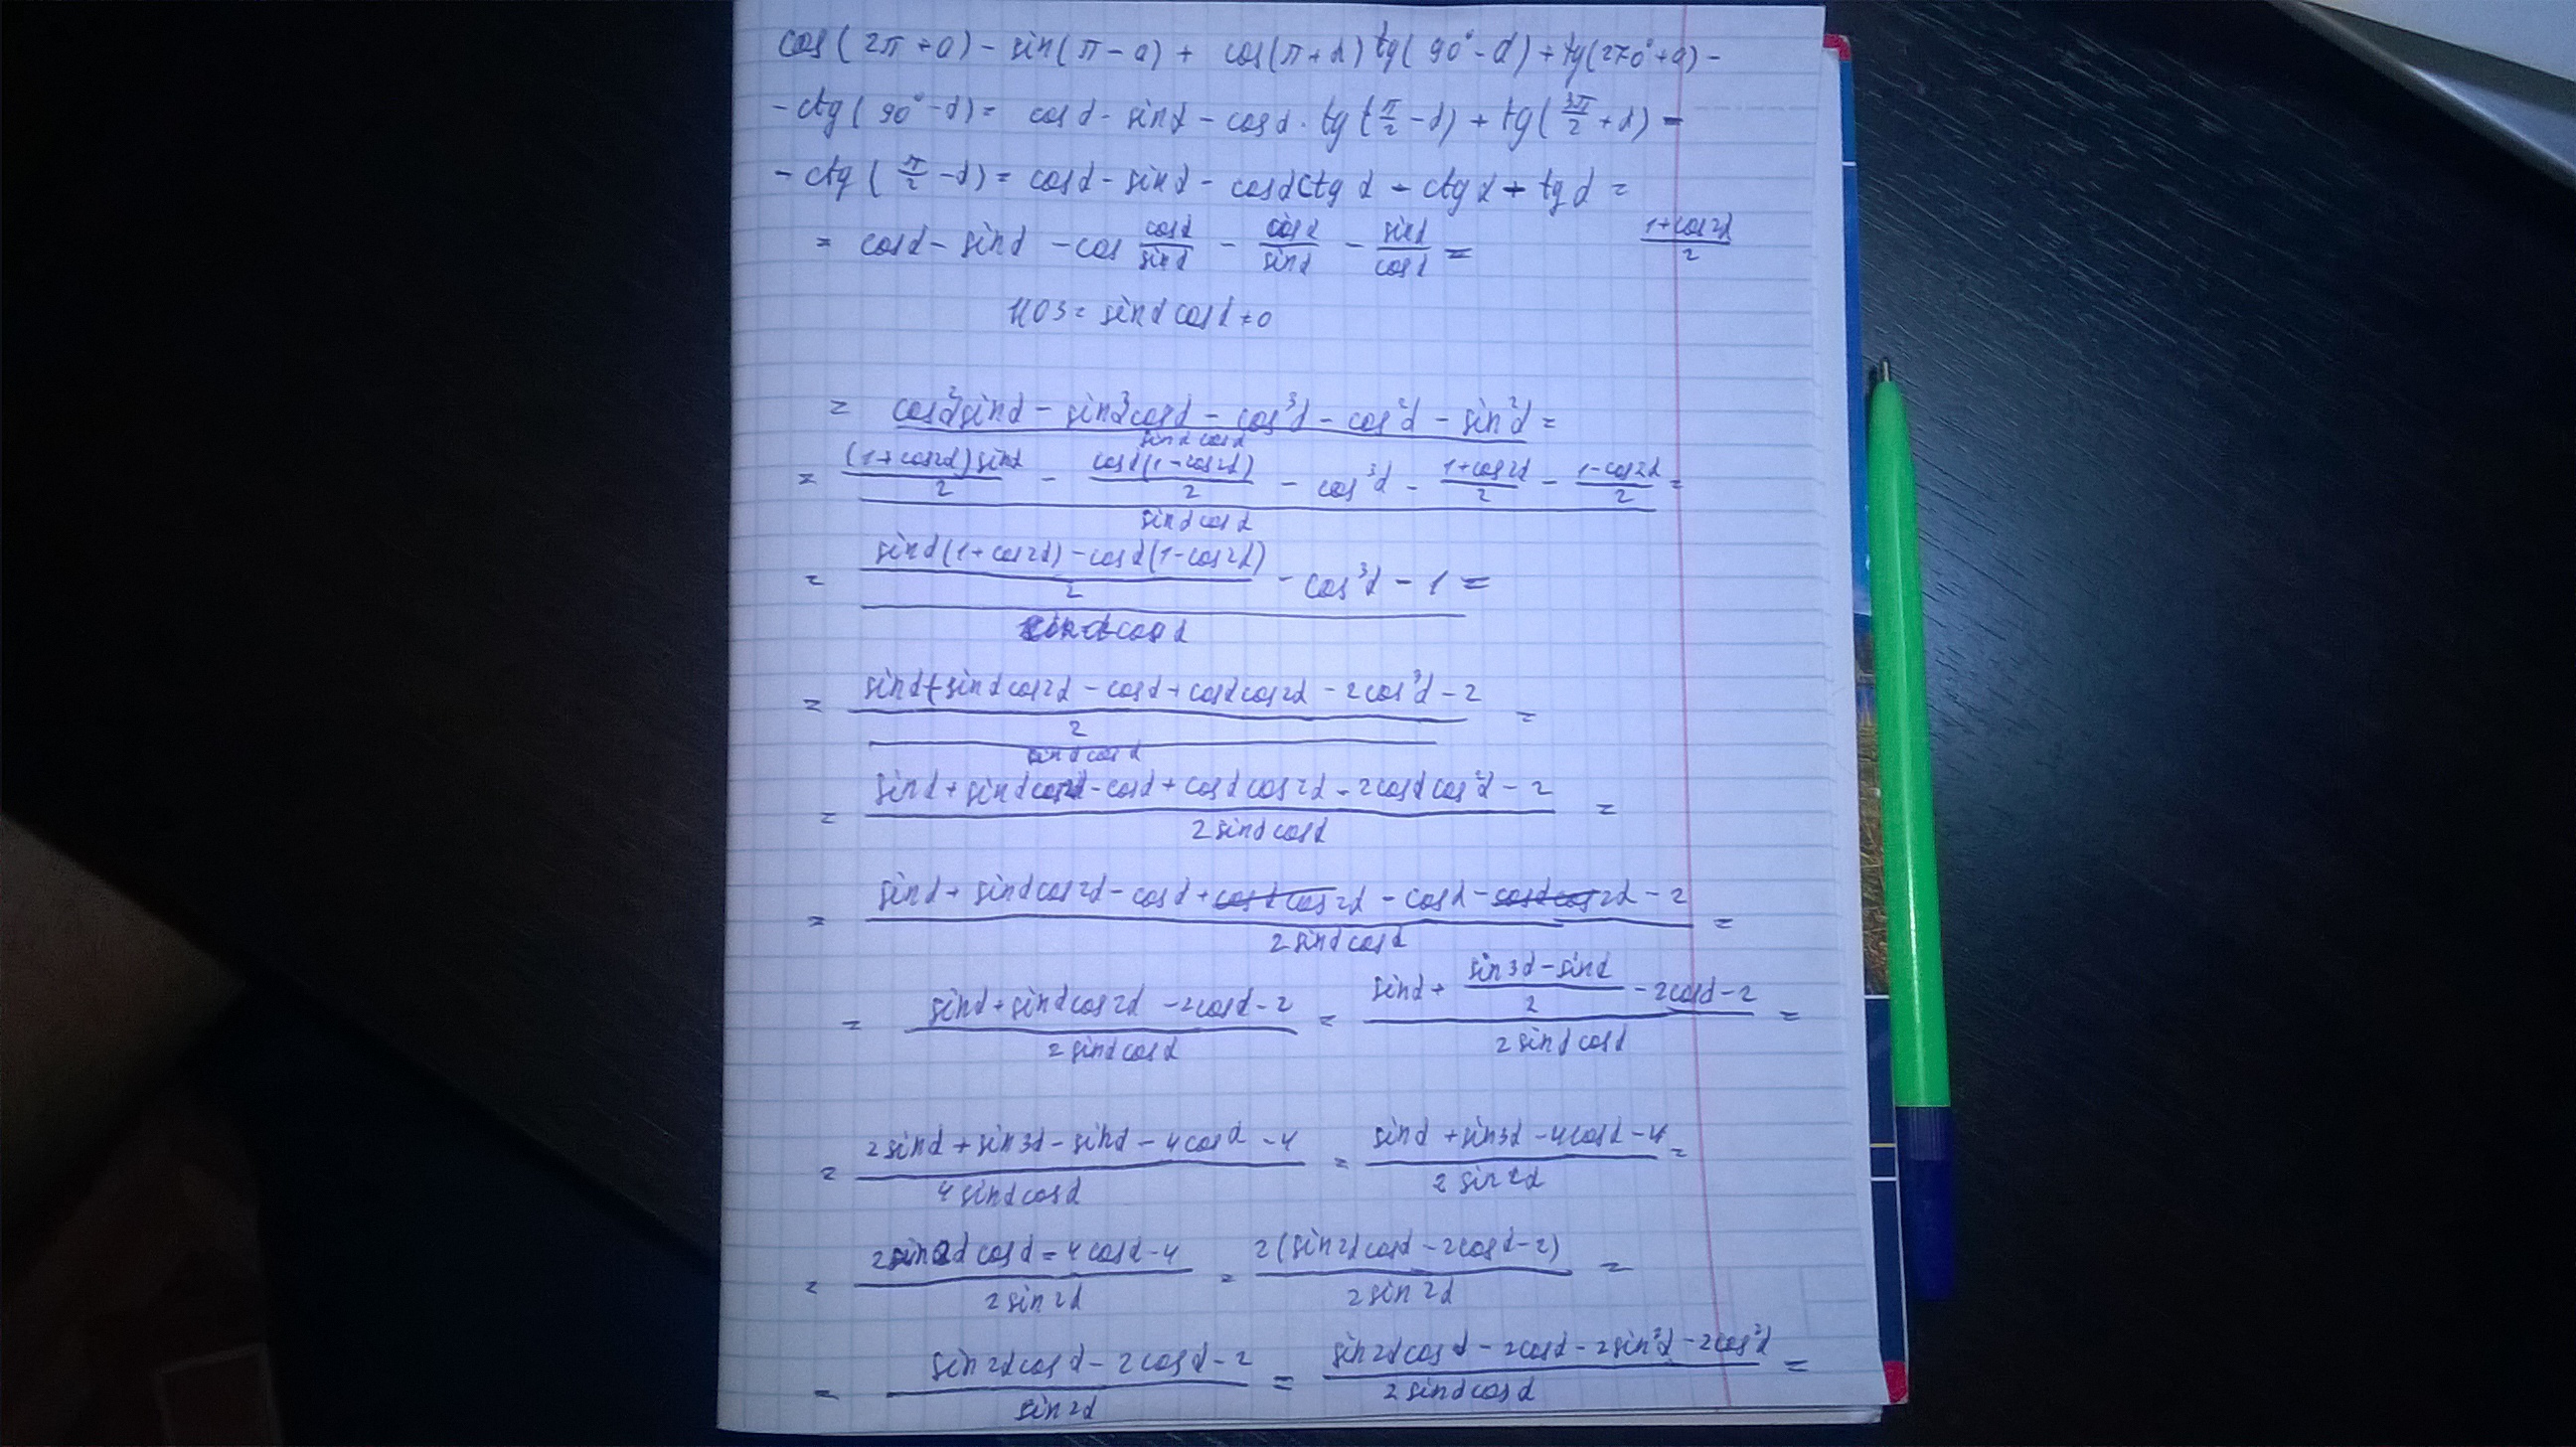 cos(2π+α) - sin(π-α) + cos(π+α) tg(90°-α) + tg(270°+α) -
- ctg(90°-α) = cosα - sinα - cosα · tg(π/2 - α) + tg(3π/2 + α) -
- ctg(π/2 - α) = cosα - sinα - cosα ctgα - ctgα + tgα =
= cosα - sinα - cos cosα/sinα - cosα/sinα - sinα/cosα = (1+cos2α)/2
НОЗ = sinα cosα ≠ 0
= (cosα² sinα - sinα² cosα - cos³α - cos²α - sin²α)/(sinα cosα) =
= ((1+cos2α)sinα/2 - cosα(1-cos2α)/2 - cos³α - (1+cos2α)/2 - (1-cos2α)/2)/(sinα cosα) =
= ((sinα(1+cos2α) - cosα(1-cos2α))/2 - cos³α - 1)/(sinα cosα) =
= ((sinα + sinα cos2α - cosα + cosα cos2α - 2cos³α - 2)/2)/(sinα cosα) =
= (sinα + sinα cos2α - cosα + cosα cos2α - 2cosα cos²α - 2)/(2 sinα cosα) =
= (sinα + sinα cos2α - cosα + cosα cos2α - cosα - cosα cos2α - 2)/(2 sinα cosα) =
= (sinα + sinα cos2α - 2cosα - 2)/(2 sinα cosα) = (sinα + (sin3α - sinα)/2 - 2cosα - 2)/(2 sinα cosα) =
= (2sinα + sin3α - sinα - 4cosα - 4)/(4 sinα cosα) = (sinα + sin3α - 4cosα - 4)/(2 sin2α) =
= (2sin2α cosα = 4cosα - 4)/(2 sin2α) = 2(sin2α cosα - 2cosα - 2)/(2 sin2α) =
= (sin2α cosα - 2cosα - 2)/(sin2α) = (sin2α cosα - 2cosα - 2sin²α - 2cos²α)/(2 sinα cosα) =